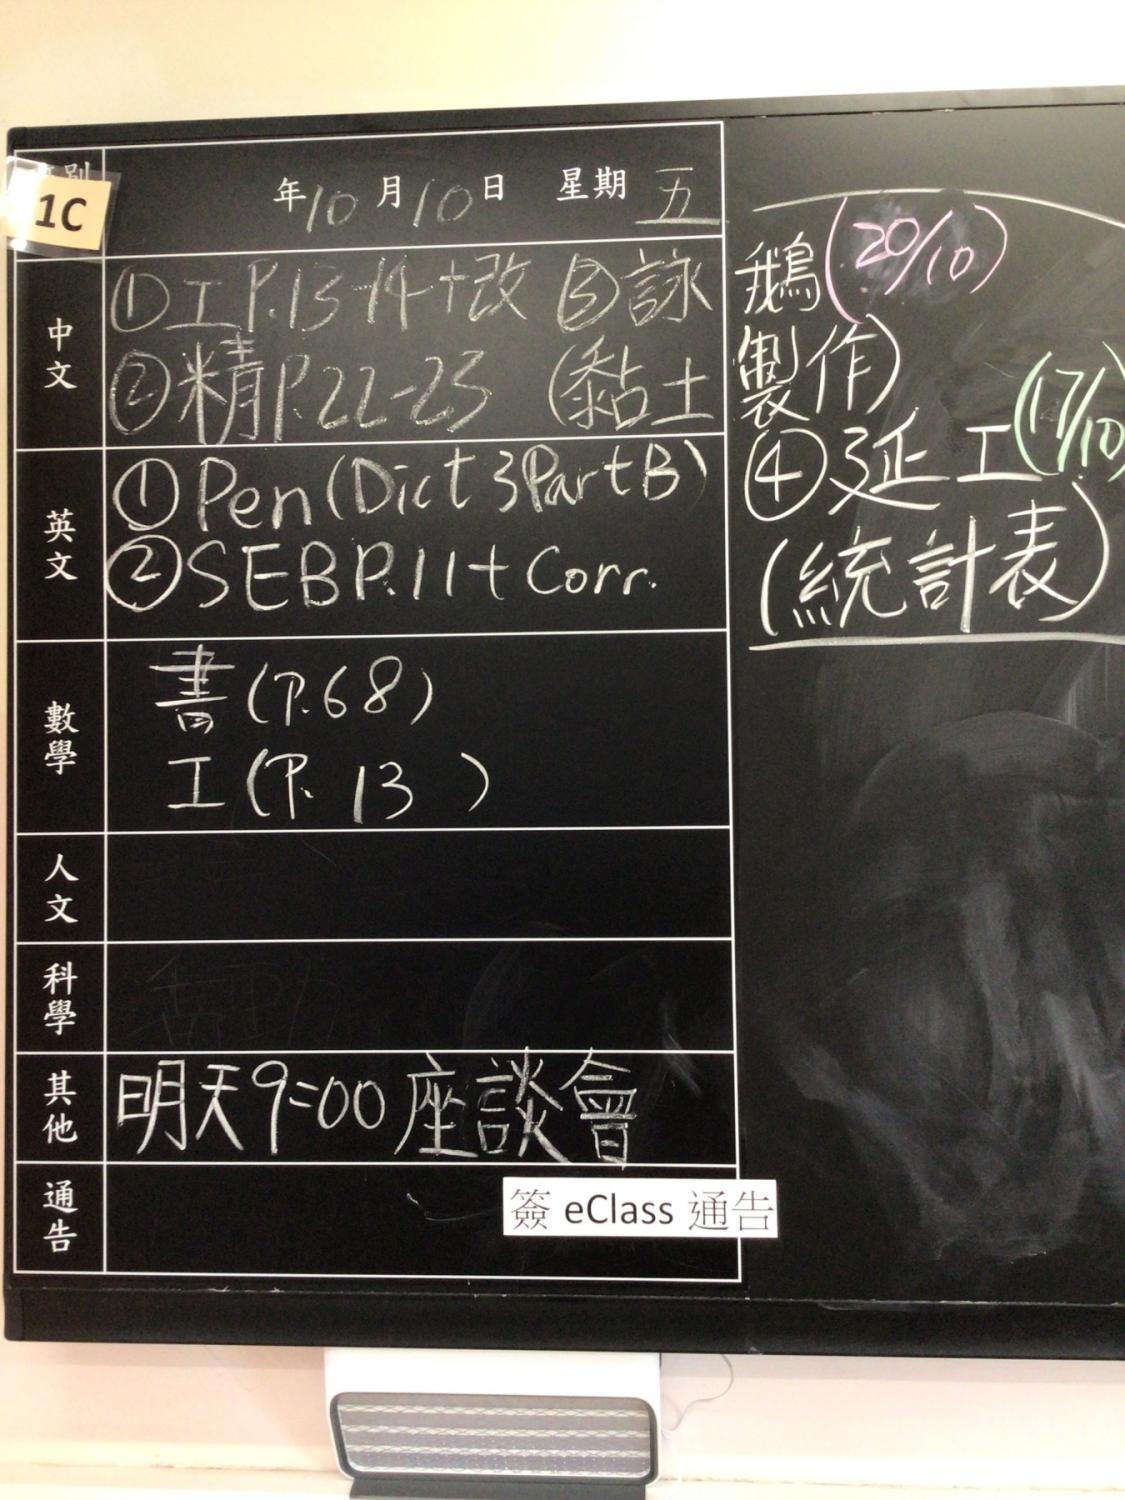 1C
年10月10日 星期五
中文
①工P.13-14+改 ③詠鵝(20/10)
②精P.22-23 (黏土製作)
④延工(17/10)
(統計表)
英文
①Pen(Dict 3PartB)
②SEBP.11+Corr.
數學
書(P.68)
工(P. 13 )
人文
科學
其他
明天9:00座談會
通告
簽 eClass 通告